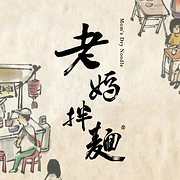 老媽拌麵
Mom's Dry Noodle